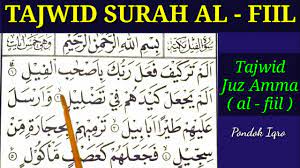 TAJWID SURAH AL - FIIL
بِسْمِ اللّٰهِ الرَّحْمٰنِ الرَّحِيْمِ
اَلَمْ تَرَ كَيْفَ فَعَلَ رَبُّكَ بِاَصْحٰبِ الْفِيْلِ
اَلَمْ يَجْعَلْ كَيْدَهُمْ فِيْ تَضْلِيْلٍ وَاَرْسَلَ
عَلَيْهِمْ طَيْرًا اَبَابِيْلَ تَرْمِيْهِمْ بِحِجَارَةٍ مِنْ
سِجِّيْلٍ فَجَعَلَهُمْ كَعَصْفٍ مَأْكُوْلٍ
Tajwid
Juz Amma
( al - fiil )
Pondok Iqro